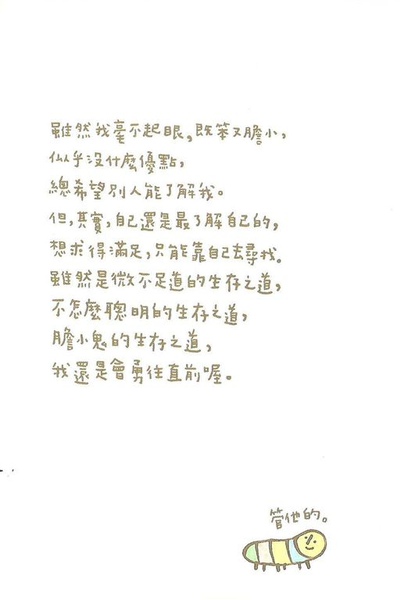 雖然我毫不起眼，既笨又膽小，
似乎沒什麼優點，
總希望別人能了解我。
但，其實，自己還是最了解自己的，
想求得滿足，只能靠自己去尋找。
雖然是微不足道的生存之道，
不怎麼聰明的生存之道，
膽小鬼的生存之道，
我還是會勇往直前喔。
管他的。